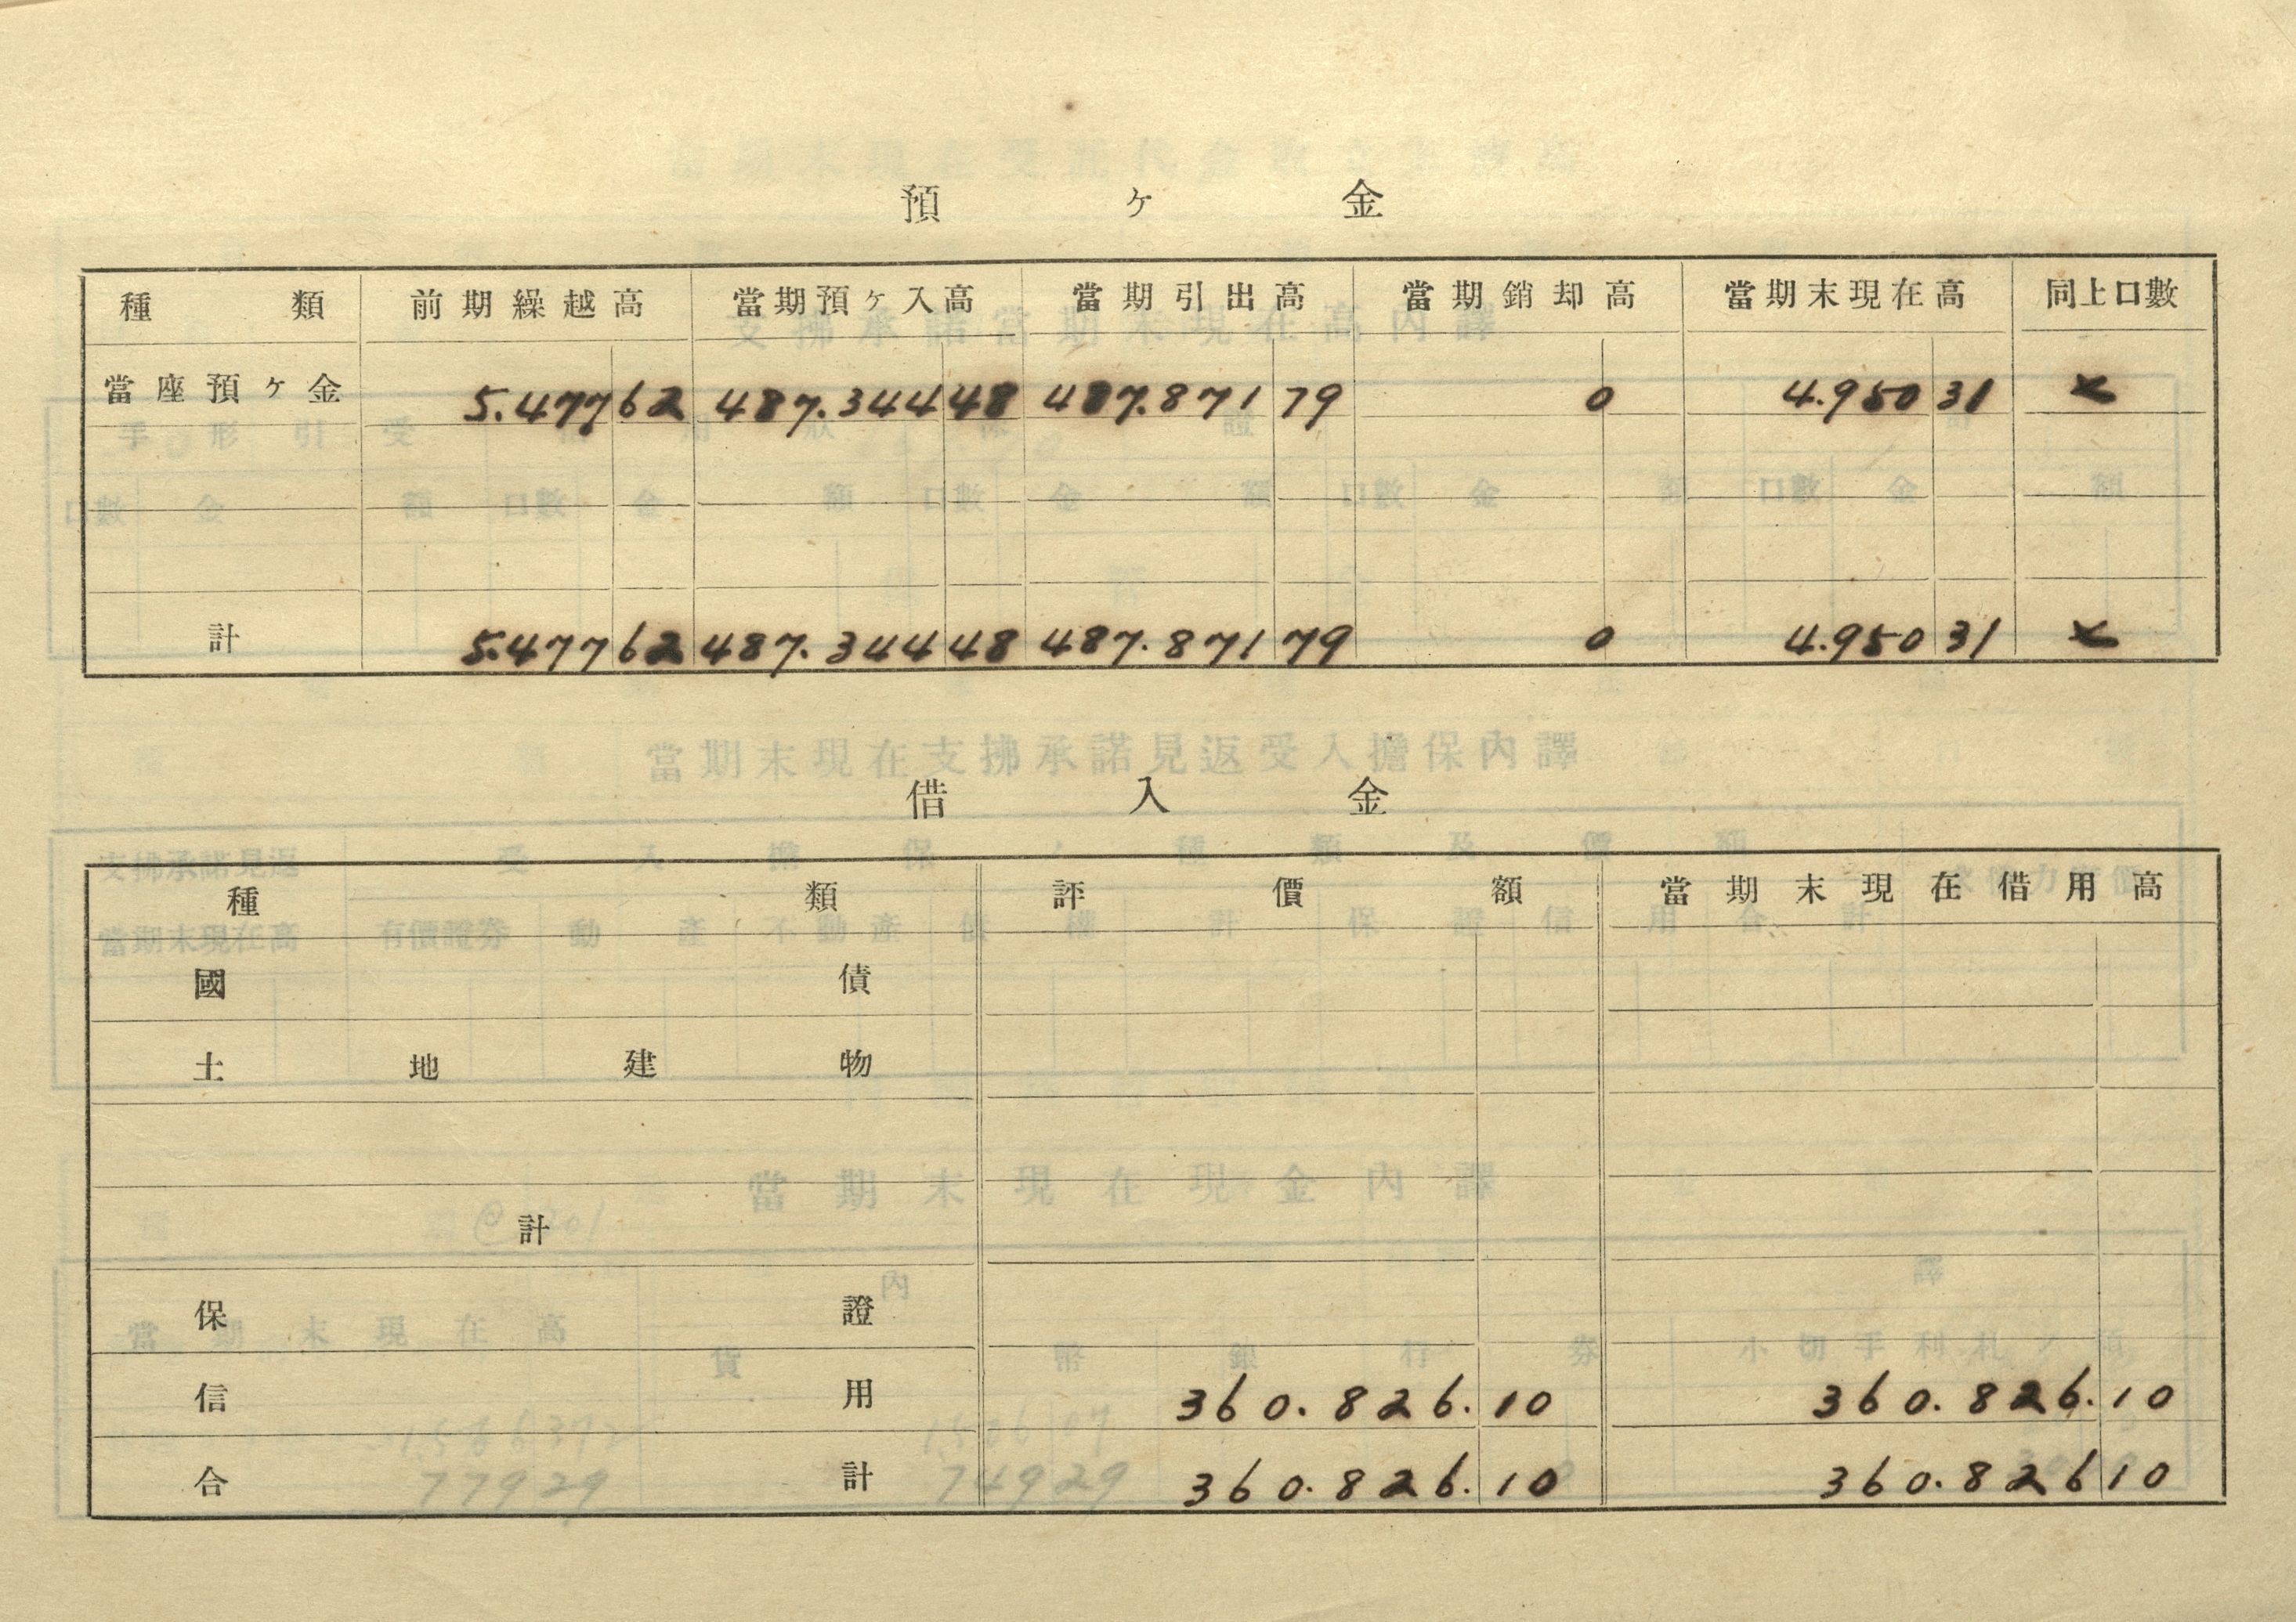 預ヶ金
種類 前期繰越高 當期預ヶ入高 當期引出高 當期銷却高 當期末現在高 同上口數
當座預ヶ金 5.477 62 487.344 48 487.871 79 0 4.950 31
計 5.477 62 487.344 48 487.871 79 0 4.950 31
借入金
種類 評價額 當期末現在借用高
國債
土地建物
計
保證
信用 360.826.10 360.826.10
合計 360.826.10 360.826 10